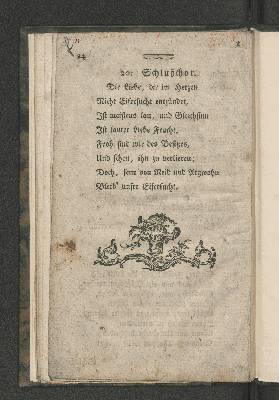 24
20. Schlußchor.
Die Liebe, der im Herzen
Nicht Eifersucht entzündet,
Ist meistens lau, und Gleichsinn
Ist lauter Liebe Frucht.
Froh sind wir des Besitzes,
Und scheu, ihn zu verlieren;
Doch, fern von Neid und Argwohn
Bleib' unsre Eifersucht.